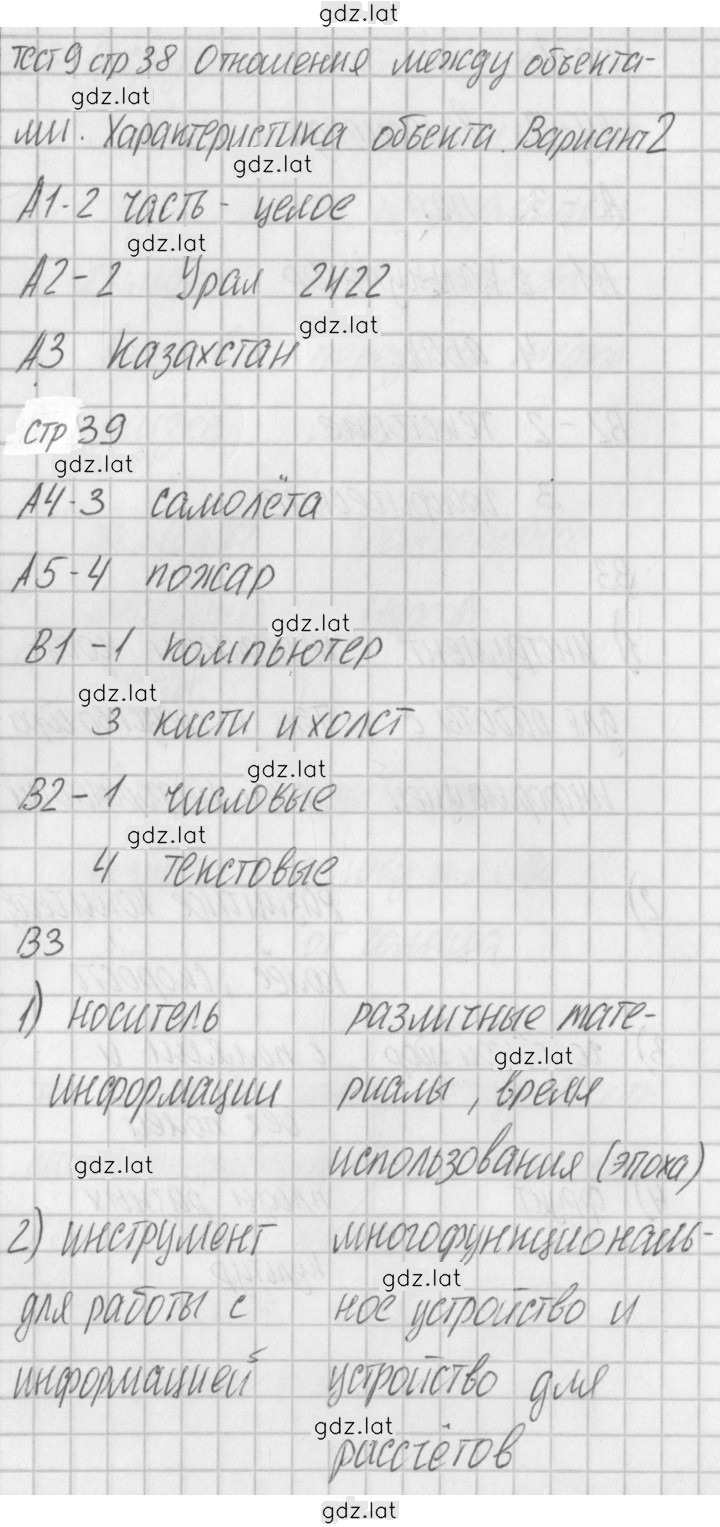 gdz.lat
Тест 9 стр 38 Отношения между объекта-
gdz.lat
ми. Характеристика объекта. Вариант 2
gdz.lat
А1-2 часть - целое
gdz.lat
А2-2 Урал 2422
gdz.lat
А3 Казахстан
стр 39
gdz.lat
А4-3 самолёта
А5-4 пожар
gdz.lat
В1-1 компьютер
gdz.lat
3 кисти и холст
gdz.lat
В2-1 числовые
gdz.lat
4 текстовые
В3
1) носитель различные мате-
gdz.lat
информации риалы, время
gdz.lat использования (эпоха)
2) инструмент многофункциональ-
gdz.lat
для работы с ное устройство и
информацией устройство для
gdz.lat
рассчётов
gdz.lat